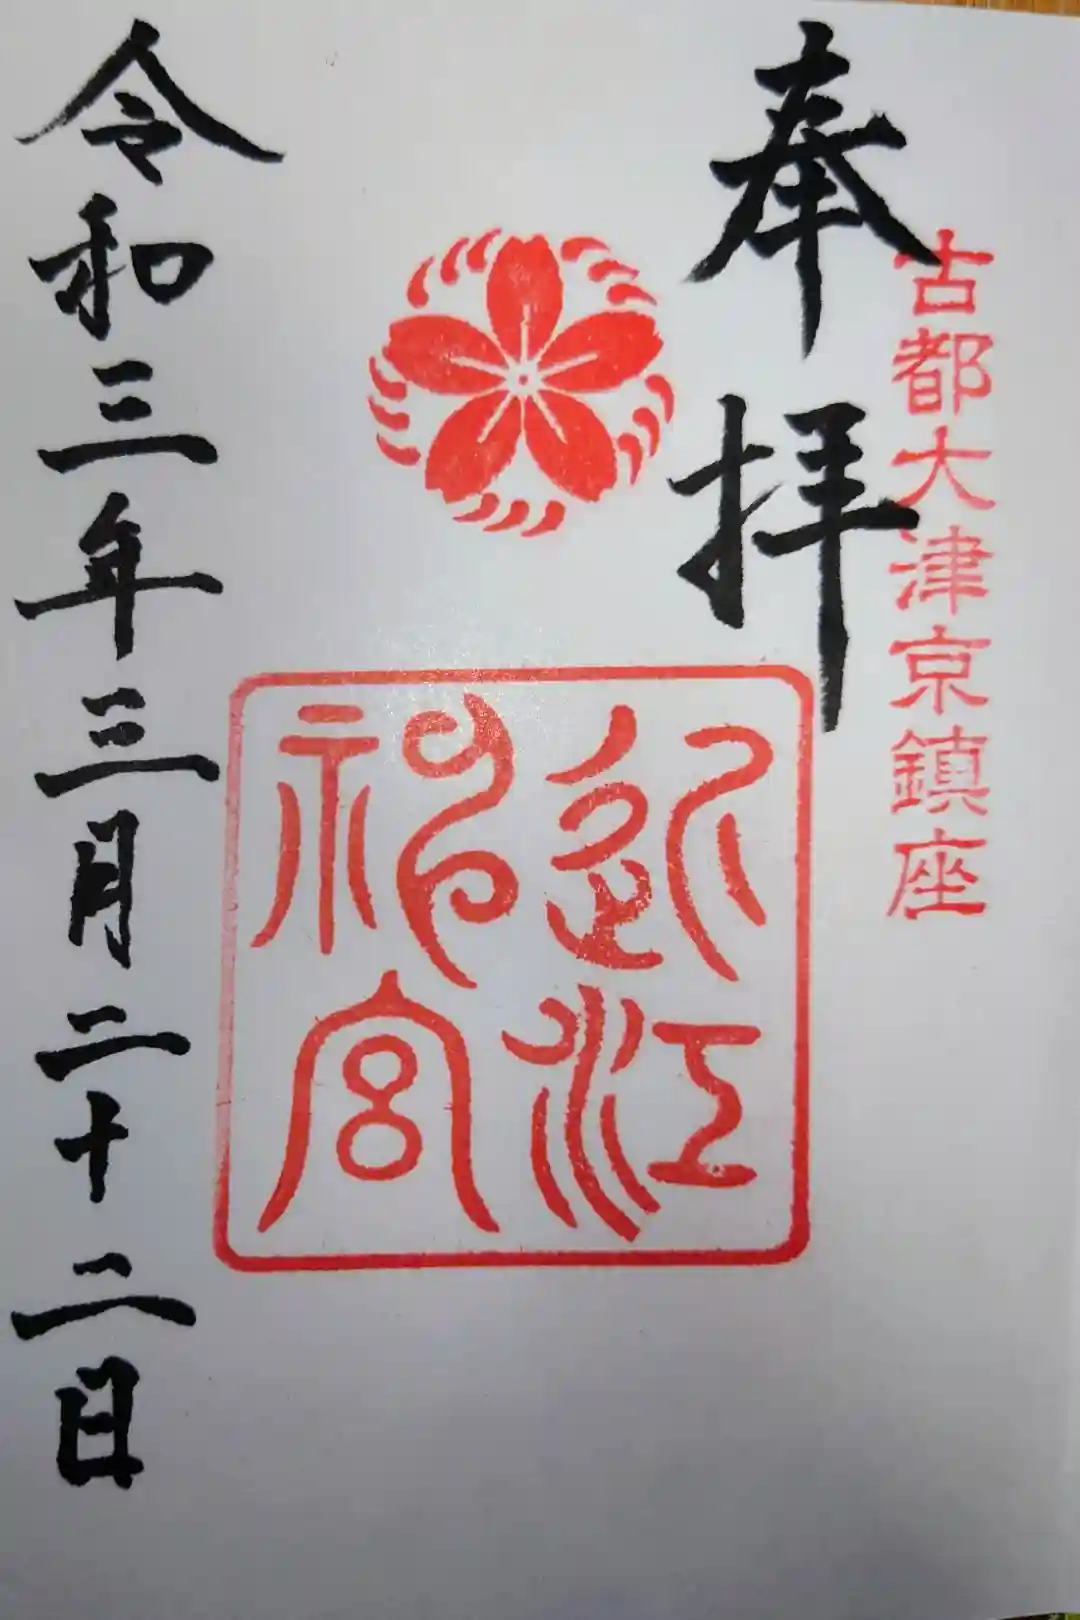 古都大津京鎮座
奉拝
近江
神宮
令和三年三月二十二日